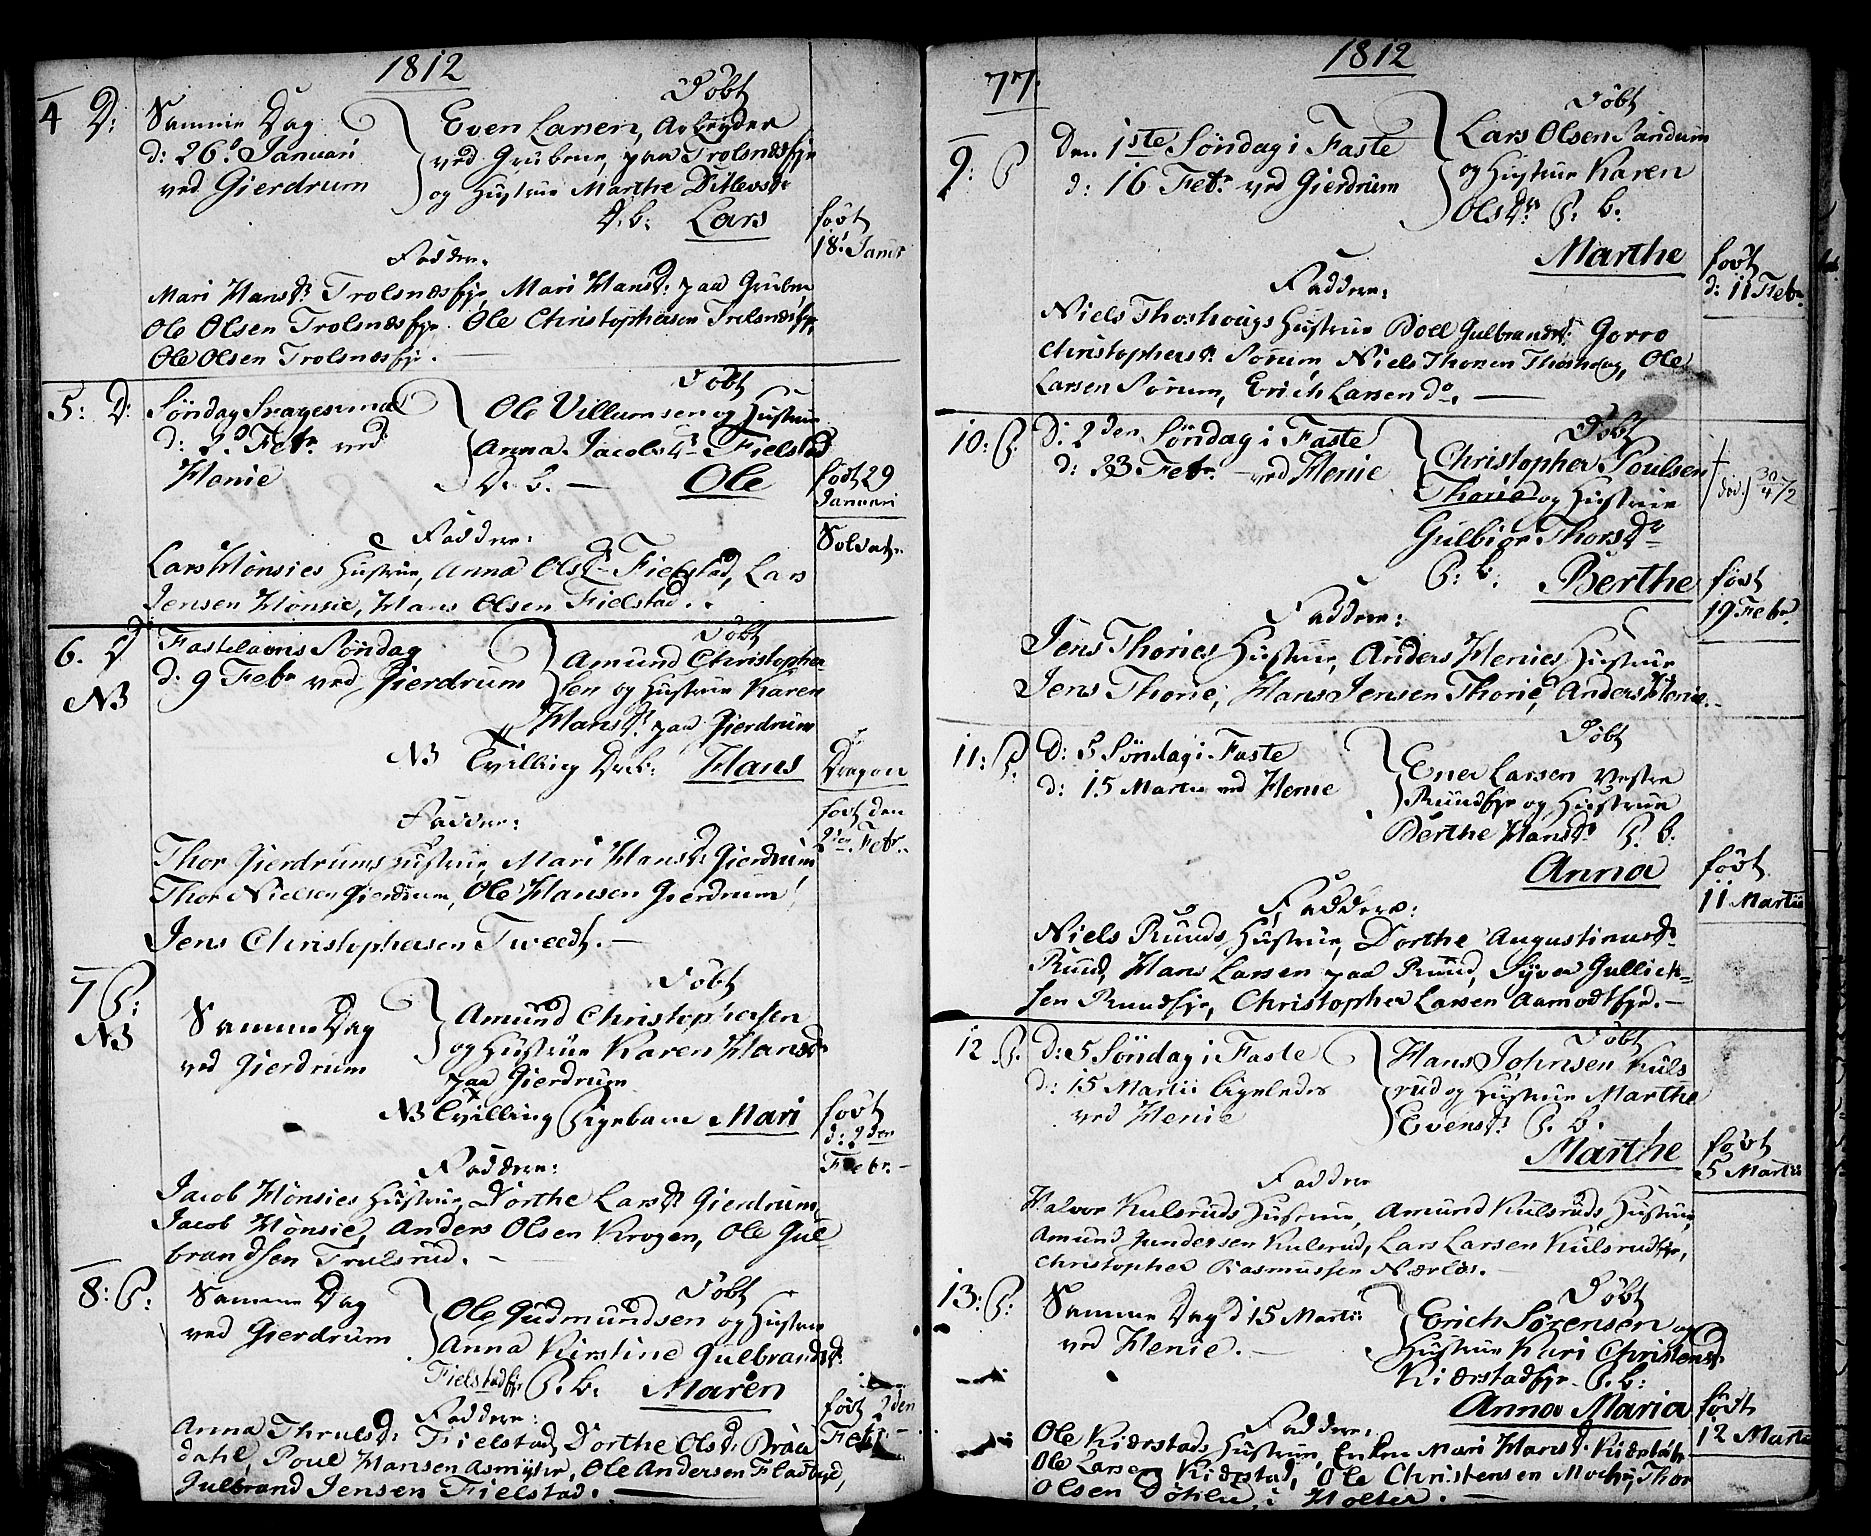 1812
4 D:
Samme Dag
d: 26 Januari
ved Gierdrum
Døbt
Even Larsen, Arbeyder
ved Gruberne, paa Trolsnæseje
og Hustrue Marthe Ditlevsdr
D. b: Lars
født
18 Janr
Faddere:
Mari Hansdr Trolsnæseje, Mari Hansdr paa Gruben
Ole Olsen Trolsnæseje. Ole Christophersen Trolsnæseje,
Ole Olsen Trolsnæseje.
5: D:
Søndag Sexagesima
d: 2 Febr ved
Henie
Døbt
Ole Villumsen og Hustrue
Anna Jacobsdr Fielstad
D. b. — Ole
født 29
Januari
Soldat
Faddere:
Lars Hønsies Hustrue, Anna Olsdr Fielstad, Lars
Jensen Hønsie, Hans Olsen Fielstad.
6. D
NB
Fastelavns Søndag
d. 9 Febr ved Gierdrum
Døbt
Amund Christopher
sen og Hustrue Karen
Hansdr paa Gierdrum
NB Tvilling Dr.b: Hans
Dragon
født den
2den Febr.
Faddere:
Thor Gierdrums Hustrue, Mari Hansdr Gierdrum,
Thor Nielsen Gierdrum, Ole Hansen Gierdrum,
Jens Christophersen Tweedt. —
7 P:
NB
Samme Dag
ved Gierdrum
Døbt
Amund Christophersen
og Hustrue Karen Hansdr
paa Gierdrum
NB Tvilling Pigebarn Mari
født
d: 2den
Febr. —
Faddere:
Jacob Hønsies Hustrue, Dorthe Larsdr Gierdrum,
Jacob Hønsie, Anders Olsen Krogen, Ole Gul-
brandsen Trulsrud. —
8: P:
Samme Dag
ved Gierdrum
Døbt
Ole Gudmundsen og Hustrue
Anna Kirstine Gulbrandsdr
Fielstadeje P. b. Maren
født 2den
Febr
Faddere:
Anna Thrulsdr Fielstad, Dorthe Olsdr Braa
dahl, Poul Hansen Asmyhr, Ole Andersen Fladbye,
Gulbrand Jensen Fielstad.
77.
1812
9: P
Den 1ste Søndag i Faste
d: 16 Febr ved Gierdrum
Døbt
Lars Olsen Sandum
og Hustrue Karen
Olsdr P. b:
Marthe
født
d: 11 Febr
Faddere:
Niels Thorshougs Hustrue Boel Gulbrandsdr Gorro
Christophersdr Sørum, Niels Thorsen Thorshoug, Ole
Larsen Sørum, Erich Larsen do. —
10: P.
D: 2den Søndag i Faste
d: 23 Febr. ved Henie
Døbt
Christopher Poulsen
Thorie og Hustrue
Gulbiør Thorsdr
P: b. Berthe
død
født
19 Febr.
Faddere:
Jens Thories Hustrue, Anders Henies Hustrue
Jens Thorie, Hans Jensen Thorie, Anders Henie.
11: P.
D: 5 Søndag i Faste
d: 15 Martii ved Henie
Døbt
Ener Larsen Vestre
Rundeje og Hustrue
Berthe Hansdr P. b:
Anna
født
11 Martii
Faddere:
Niels Runds Hustrue, Dorthe Augustinusdr
Ruud, Hans Larsen paa Ruud, Syver Gullich-
sen Rundseje, Christopher Larsen Aamodteje. —
12 P.
D: 5 Søndag i Faste
d: 15 Martii ligeledes
ved Henie
Døbt
Hans Johnsen Kuls
rud og Hustrue Marthe
Evensdr P. b.
Marthe
født
5 Martii
Faddere
Halvor Kulsruds Hustrue, Amund Kulsruds Hustrue,
Amund Gundersen Kulsrud, Lars Larsen Kulsrudeje,
Christopher Rasmussen Nærløs. —
13: P:
Samme Dag d 15 Martii
ved Henie. —
Døbt
Erich Sørensen og
Hustrue Kari Christensdr
Kiærstadeje P. b:
Anna Maria
født
12 Martii
Faddere:
Ole Kiærstads Hustrue, Enken Mari Hansdr
Ole Larsen Kiærstad, Ole Christensen Thor
Olsen i Holter. —